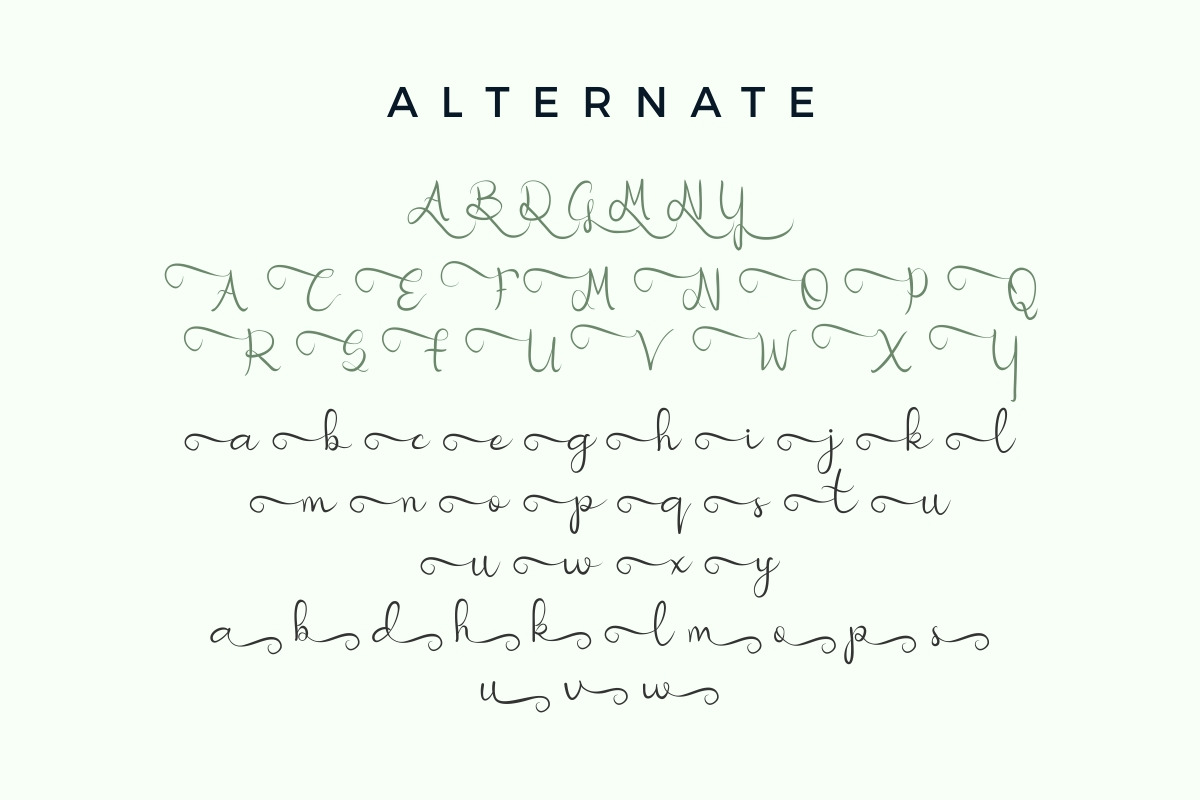 ALTERNATE
A B D G M N Y
A C E F M N O P Q
R S T U V W X Y
a b c e g h i j k l
m n o p q s t u
u w x y
a b d h k l m o p s
u v w